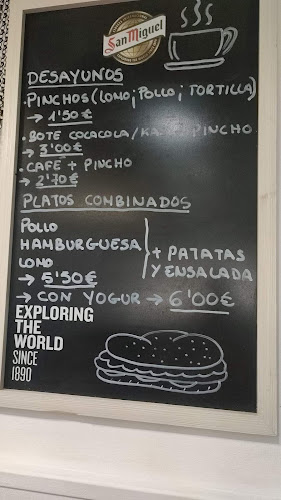 San Miguel
DESAYUNOS
·PINCHOS (LOMO ¡ POLLO ¡ TORTILLA)
→ 1'50€
·BOTE COCACOLA/KA PINCHO
→ 3'00€
·CAFÉ + PINCHO
→ 2'70€
PLATOS COMBINADOS
POLLO
HAMBURGUESA
LOMO
+ PATATAS
Y ENSALADA
→ 5'50€
→ CON YOGUR → 6'00€
EXPLORING
THE
WORLD
SINCE
1890